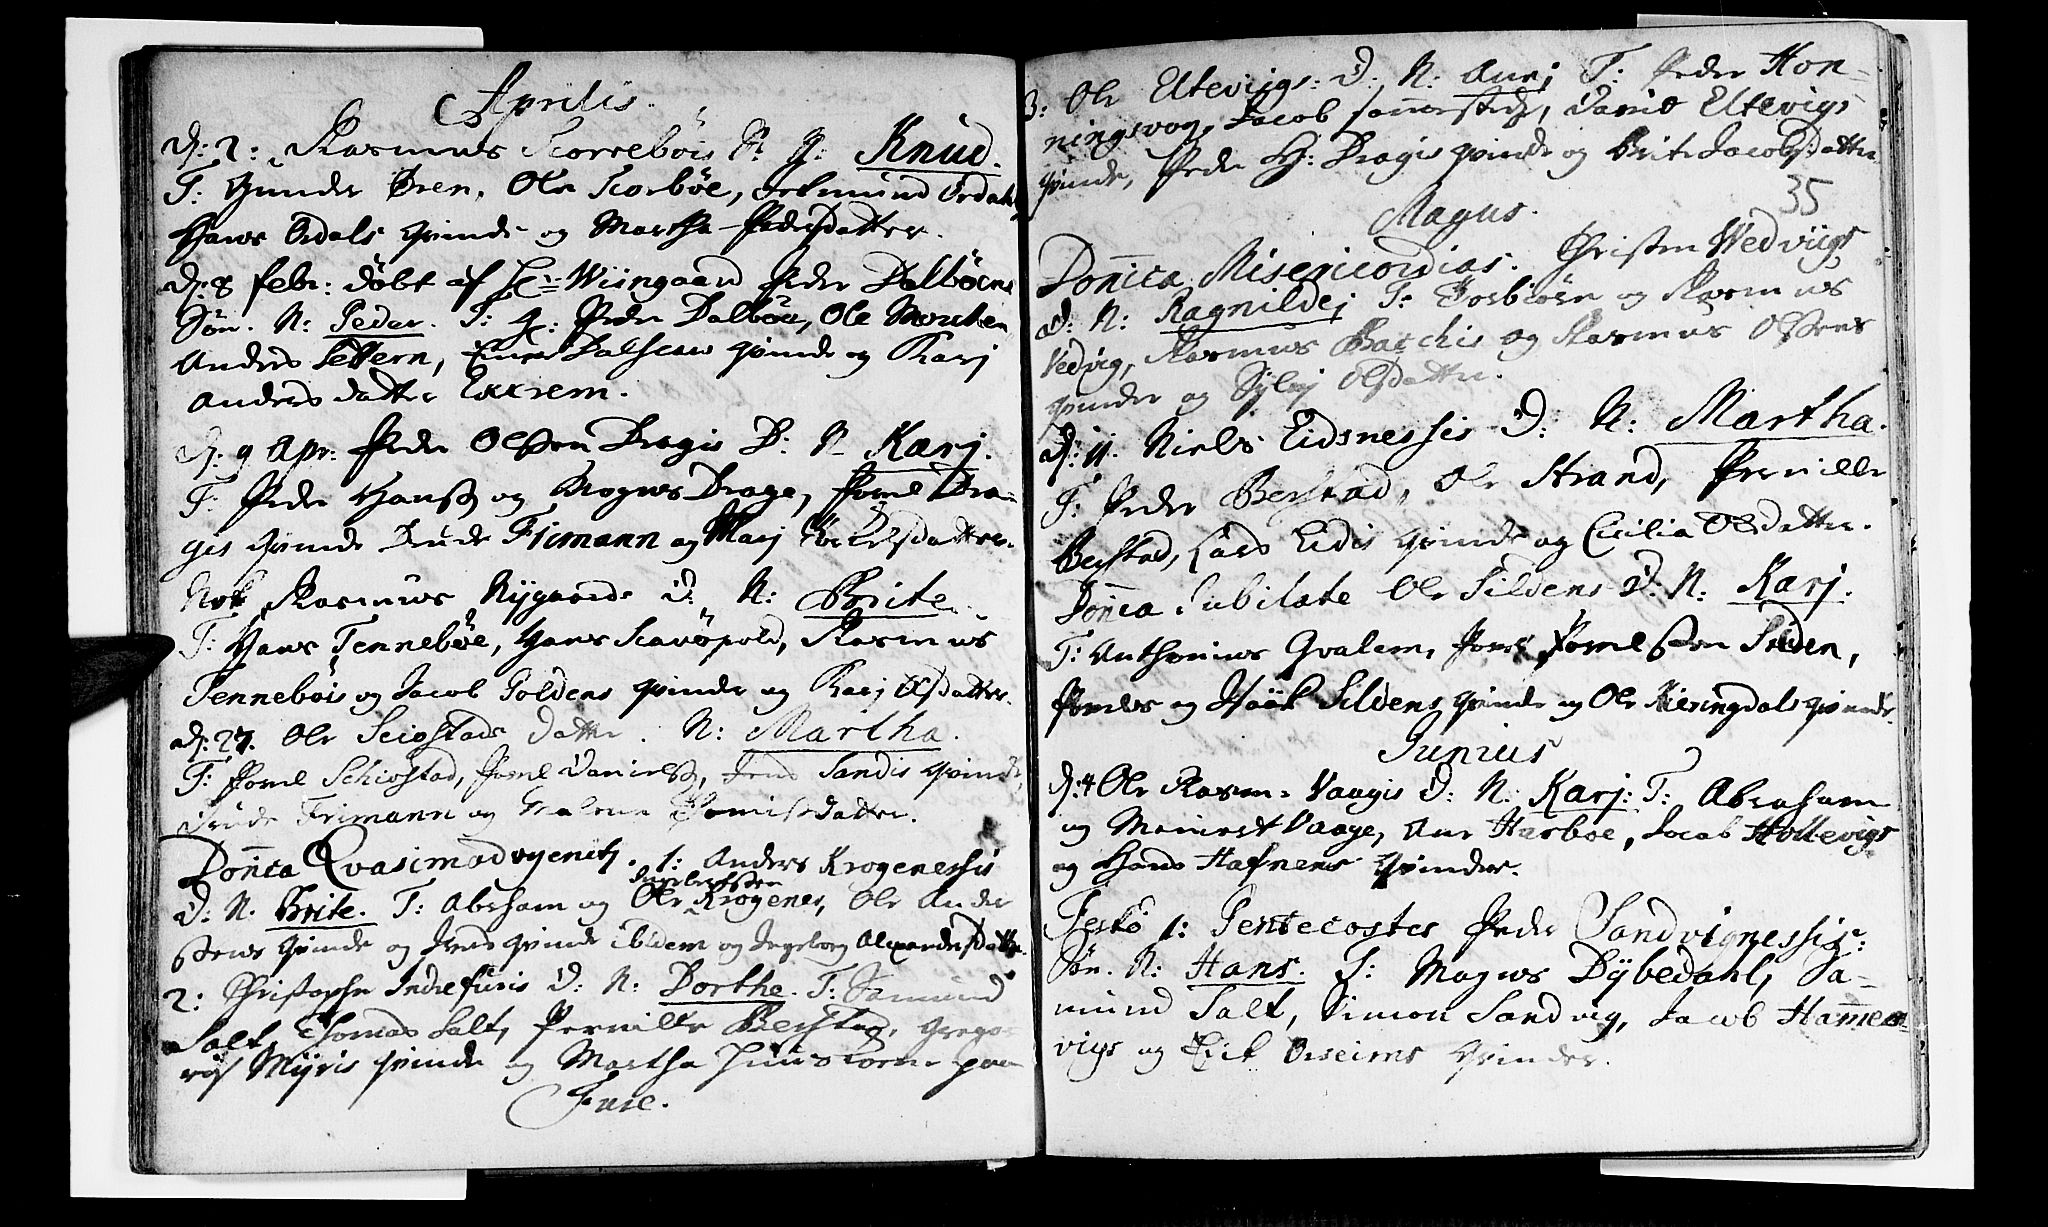 Aprilis.
d: 2: Rasmus Scorrebøis S: N: Knud.
T: Gunder Øren, Ole Scorbøe, Ørdal,
Hans Ørdals qvinde og Martha Pedersdatter.
d: 8 febr: døbt af Hr: Wiingaard Peder Dalbøens
Søn. N: Peder. T: H: Peder Dalbøe, Ole Mouten
Anders Settern, qvinde og Karj
Anders datter Exxrem.
d: 9 Apr: Peder Olssen Dragis D: N: Karj.
T: Peder Hanss og Mogns Drage, Povel Dra-
ges qvinde Drude Frimann og Marj
Nok Rasmus Nygaards D: N: Brite.
T: Hans Tennebøe, Hans Scavøpold, Rasmus
Tennebøis og Jacob Goldens qvinde og Karj Olsdatter.
d: 27. Ole Sciøstads datter. N: Martha.
T: Povel Schiøstad, Povel Danielss, Jens Sandis qvinde,
Drude Frimann og Malene datter.
Donica Qvasimodogenitj. 1: Anders Krogenessis
Ingebretssen
D: N. Brite. T: Abraham og Ole Krogenes, Ole Ander
ssens qvinde og Jens qvinde ibidem og Ingeborg Alexandersdatter.
2: Christopher Indrefuris D: N: Dorthe. T: Samund
Salt, Thomas Salt, Pernille Berstad, Gregori
Myris qvinde og Martha paa
Furre.
3: Ole Eltevigs D: N: Anne T: Peder Hon-
ningsvog, Jacob, David Eltevigs
qvinde, Peder H: Dragis qvinde og Brite Jacobsdatter.
35
Majus.
Donica Misericordias. Christen Wedviigs
D: N: Ragnilde, T: Torbiørn og Rasmus
Vedvig, Rasmus Bacchis og Rasmus Olsens
qvinder og Sylvj Olsdatter.
d: 11. Niels Eidsnessis D: N: Martha.
T: Peder Berstad, Ole Strand, Pernille
Berstad, Lars Eidis qvinde og Cicilia Olsdatter.
Donica Jubilate Ole Sildens D. N: Karj.
T: Anthonius Qvalem, Povel ssen Silden,
og Sildens qvinde og Ole Kieringdals qvinde.
Junius
d: 4 Ole Rasm: Vaagis D: N: Karj: T: Abraham
og Meinert Vaage, Ane Harboe, Jacob Hollevigs
og Hans Hafnens qvinder.
Festo 1: Pentecostes Peder Sandvignessis:
Søn. N: Hans. T: Mogns Dybedahl, Sa-
mund Salt, Simon Sandvig, Jacob Hamer-
vigs og Erick Orseims qvinder.